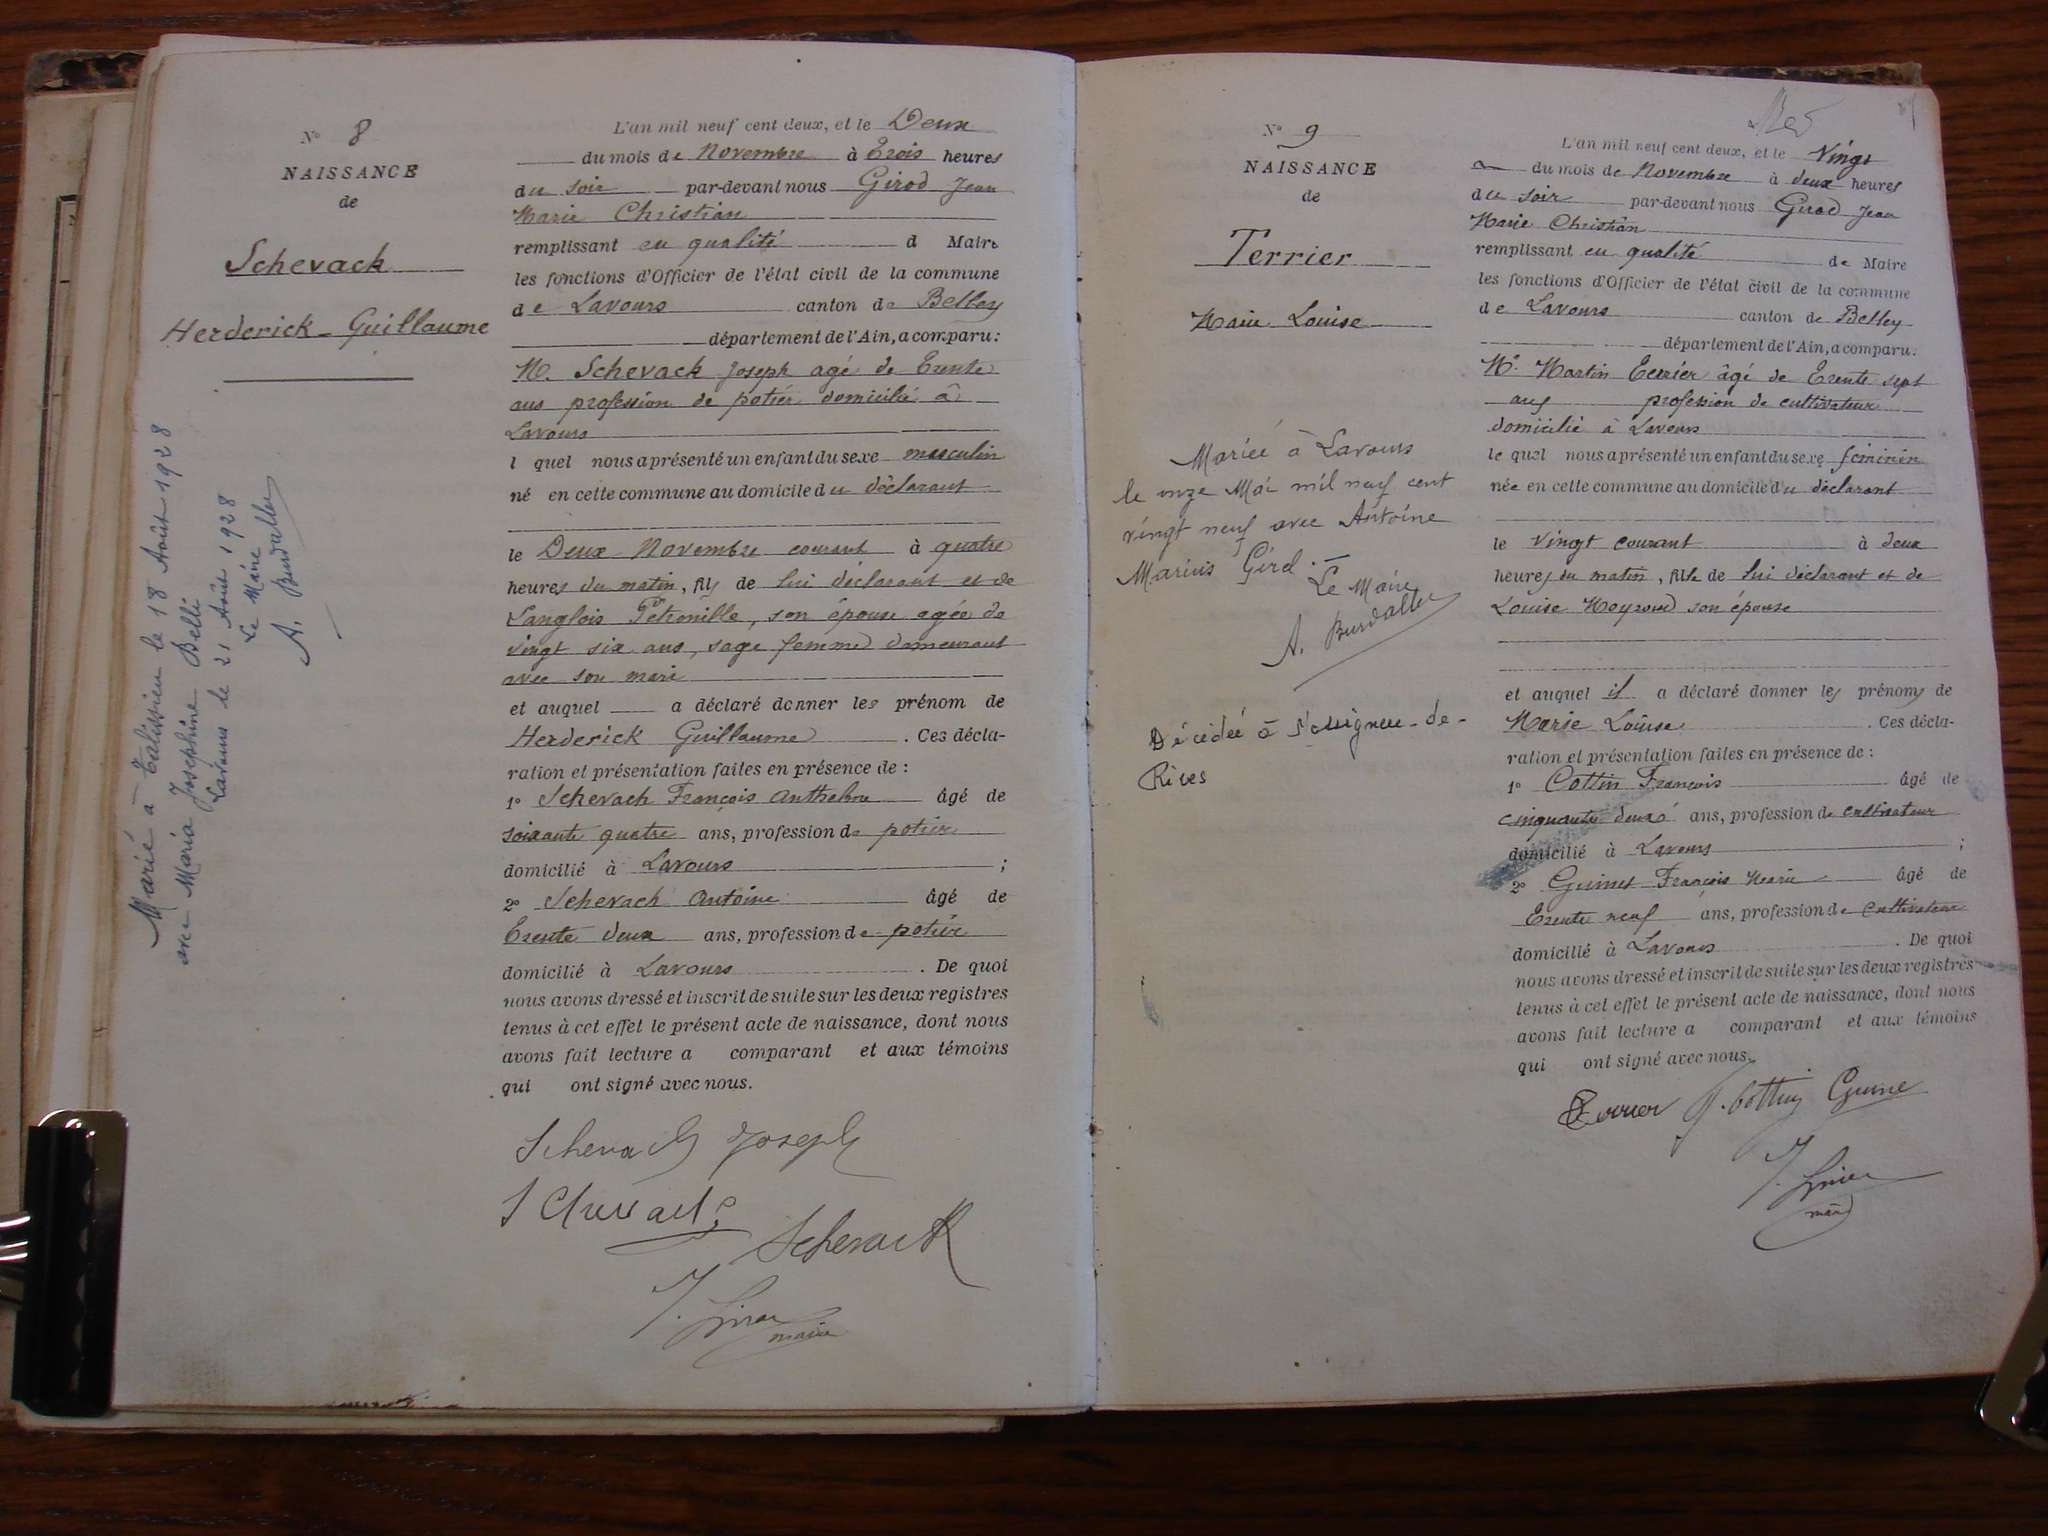 N° 8
NAISSANCE
de
Schevack
Herderick Guillaume
Marié à Talissieu le 18 Août 1928
avec Maria Joséphine Belli
Lavours le 21 Août 1928
Le Maire
A. Burdallet
L'an mil neuf cent deux, et le Deux
du mois de Novembre à Trois heures
du soir par-devant nous Girod Jean
Marie Christian
remplissant en qualité d Maire
les fonctions d'Officier de l'état civil de la commune
de Lavours canton de Belley
département de l'Ain, a comparu:
M. Schevack Joseph agé de Trente
ans profession de potier domicilié à
Lavours
l quel nous a présenté un enfant du sexe masculin
né en cette commune au domicile du déclarant
le Deux Novembre courant à quatre
heures du matin, fils de lui déclarant et de
Langlois Pétronille, son épouse agée de
vingt six ans, sage femme demeurant
avec son mari
et auquel a déclaré donner les prénom de
Herderick Guillaume. Ces décla-
ration et présentation faites en présence de :
1° Schevach François Anthelme âgé de
soixante quatre ans, profession de potier
domicilié à Lavours ;
2° Schevach Antoine âgé de
Trente deux ans, profession de potier
domicilié à Lavours. De quoi
nous avons dressé et inscrit de suite sur les deux registres
tenus à cet effet le présent acte de naissance, dont nous
avons fait lecture a comparant et aux témoins
qui ont signé avec nous.
Schevach Joseph
Schevack
maire
N° 9
NAISSANCE
de
Terrier
Marie Louise
Mariée à Lavours
le onze Mai mil neuf cent
vingt neuf avec Antoine
Marius Girel.
Le Maire
A. Burdallet
Décédée à Serrières-de-
Rives
L'an mil neuf cent deux, et le Vingt
du mois de Novembre à deux heures
du soir par-devant nous Girod Jean
Marie Christian
remplissant en qualité de Maire
les fonctions d'Officier de l'état civil de la commune
de Lavours canton de Belley
département de l'Ain, a comparu:
M. Martin Terrier âgé de Trente sept
ans profession de cultivateur
domicilié à Lavours
le quel nous a présenté un enfant du sexe féminin
née en cette commune au domicile du déclarant
le vingt courant à deux
heures du matin, fille de lui déclarant et de
Louise Moyroud son épouse
et auquel il a déclaré donner les prénoms de
Marie Louise. Ces décla-
ration et présentation faites en présence de :
1° Cottin François âgé de
cinquante deux ans, profession de cultivateur
domicilié à Lavours ;
2° Guinet François Marie âgé de
Trente neuf ans, profession de cultivateur
domicilié à Lavours. De quoi
nous avons dressé et inscrit de suite sur les deux registres
tenus à cet effet le présent acte de naissance, dont nous
avons fait lecture a comparant et aux témoins
qui ont signé avec nous.
Terrier F. Cottin Guinet